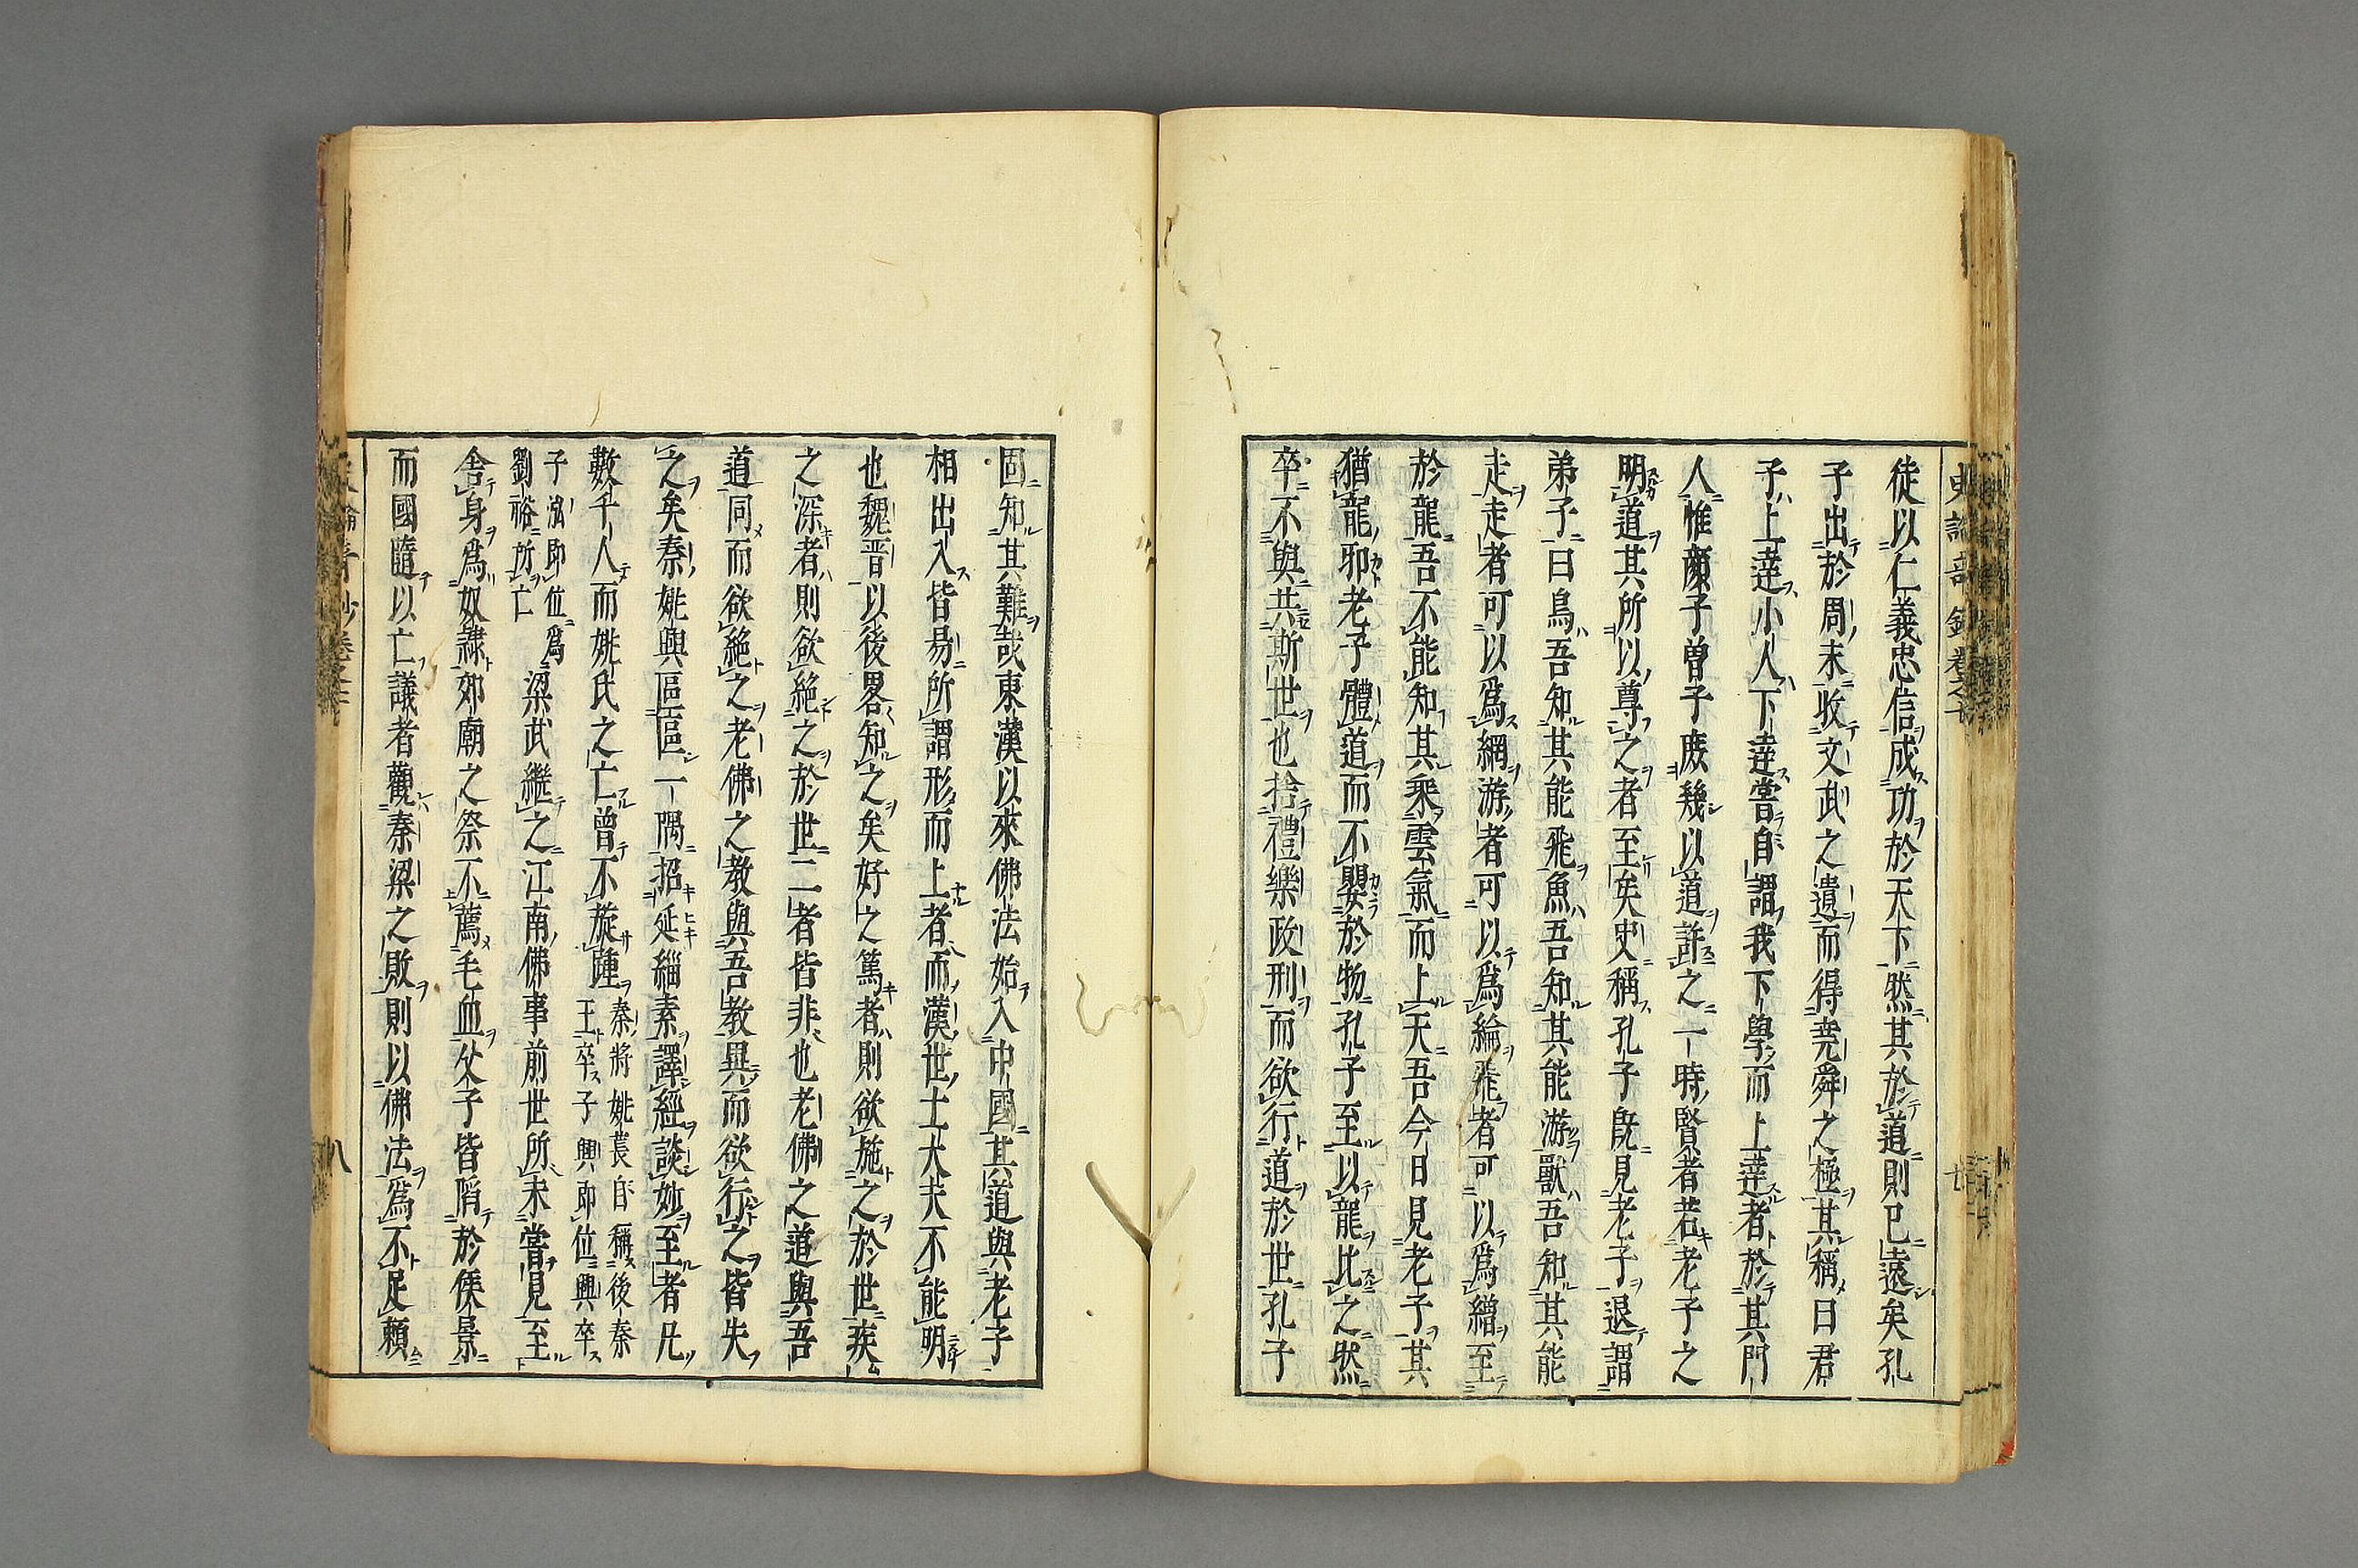 徒以仁義忠信成功於天下然其於道則已遠矣孔
子出於周末收文武之遺而得堯舜之極其稱曰君
子上達小人下達嘗自謂我下學而上達者於其門
人惟顔子曾子庶幾以道許之一時賢者若老子之
明道其所以尊之者至矣史稱孔子既見老子退謂
弟子曰鳥吾知其能飛魚吾知其能游獸吾知其能
走走者可以爲網游者可以爲綸飛者可以爲繒至
於龍吾不能知其乘雲氣而上天吾今日見老子其
猶龍邪老子體道而不嬰於物孔子至以龍比之然
卒不與共斯世也捨禮樂政刑而欲行道於世孔子
固知其難哉東漢以來佛法始入中國其道與老子
相出入皆易所謂形而上者而漢世士大夫不能明
也魏晋以後畧知之矣好之篤者則欲施之於世疾
之深者則欲絶之於世二者皆非也老佛之道與吾
道同而欲絶之老佛之教與吾教異而欲行之皆失
之矣秦姚興區區一隅招延緇素譯經談妙至者凡
數千人而姚氏之亡曾不旋踵
秦將姚萇自稱後秦
王卒子興即位興卒
子泓即位爲
劉裕所亡
梁武繼之江南佛事前世所未嘗見至
舎身爲奴隷郊廟之祭不薦毛血父子皆陷於侯景
而國隨以亡議者觀秦梁之敗則以佛法爲不足頼
八